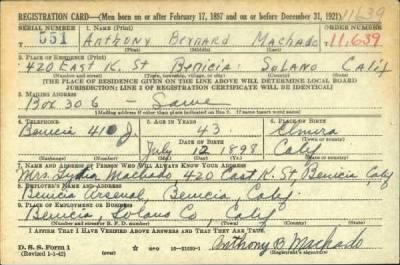 REGISTRATION CARD—(Men born on or after February 17, 1897 and on or before December 31, 1921) 11639
SERIAL NUMBER 1. NAME (Print) ORDER NUMBER
551 Anthony Bernard Machado 11,639
(First) (Middle) (Last)
2. PLACE OF RESIDENCE (Print)
420 East K. St Benicia Solano Calif
(Number and street) (Town, township, village, or city) (County) (State)
[THE PLACE OF RESIDENCE GIVEN ON THE LINE ABOVE WILL DETERMINE LOCAL BOARD
JURISDICTION; LINE 2 OF REGISTRATION CERTIFICATE WILL BE IDENTICAL]
3. MAILING ADDRESS
Box 306 — Same
[Mailing address if other than place indicated on line 2. If same insert word same]
4. TELEPHONE 5. AGE IN YEARS 6. PLACE OF BIRTH
Benicia 410 J. 43 Elmira
DATE OF BIRTH (Town or county)
July 12 1898 Calif
(Exchange) (Number) (Mo.) (Day) (Yr.) (State or country)
7. NAME AND ADDRESS OF PERSON WHO WILL ALWAYS KNOW YOUR ADDRESS
Mrs. Lydia Machado 420 East K. St Benicia Calif
8. EMPLOYER'S NAME AND ADDRESS
Benicia Arsenal, Benicia, Calif.
9. PLACE OF EMPLOYMENT OR BUSINESS
Benicia, Solano Co, Calif
(Number and street or R. F. D. number) (Town) (County) (State)
I AFFIRM THAT I HAVE VERIFIED ABOVE ANSWERS AND THAT THEY ARE TRUE.
D. S. S. Form 1
(Revised 1-1-42) Anthony B Machado
(Registrant's signature)